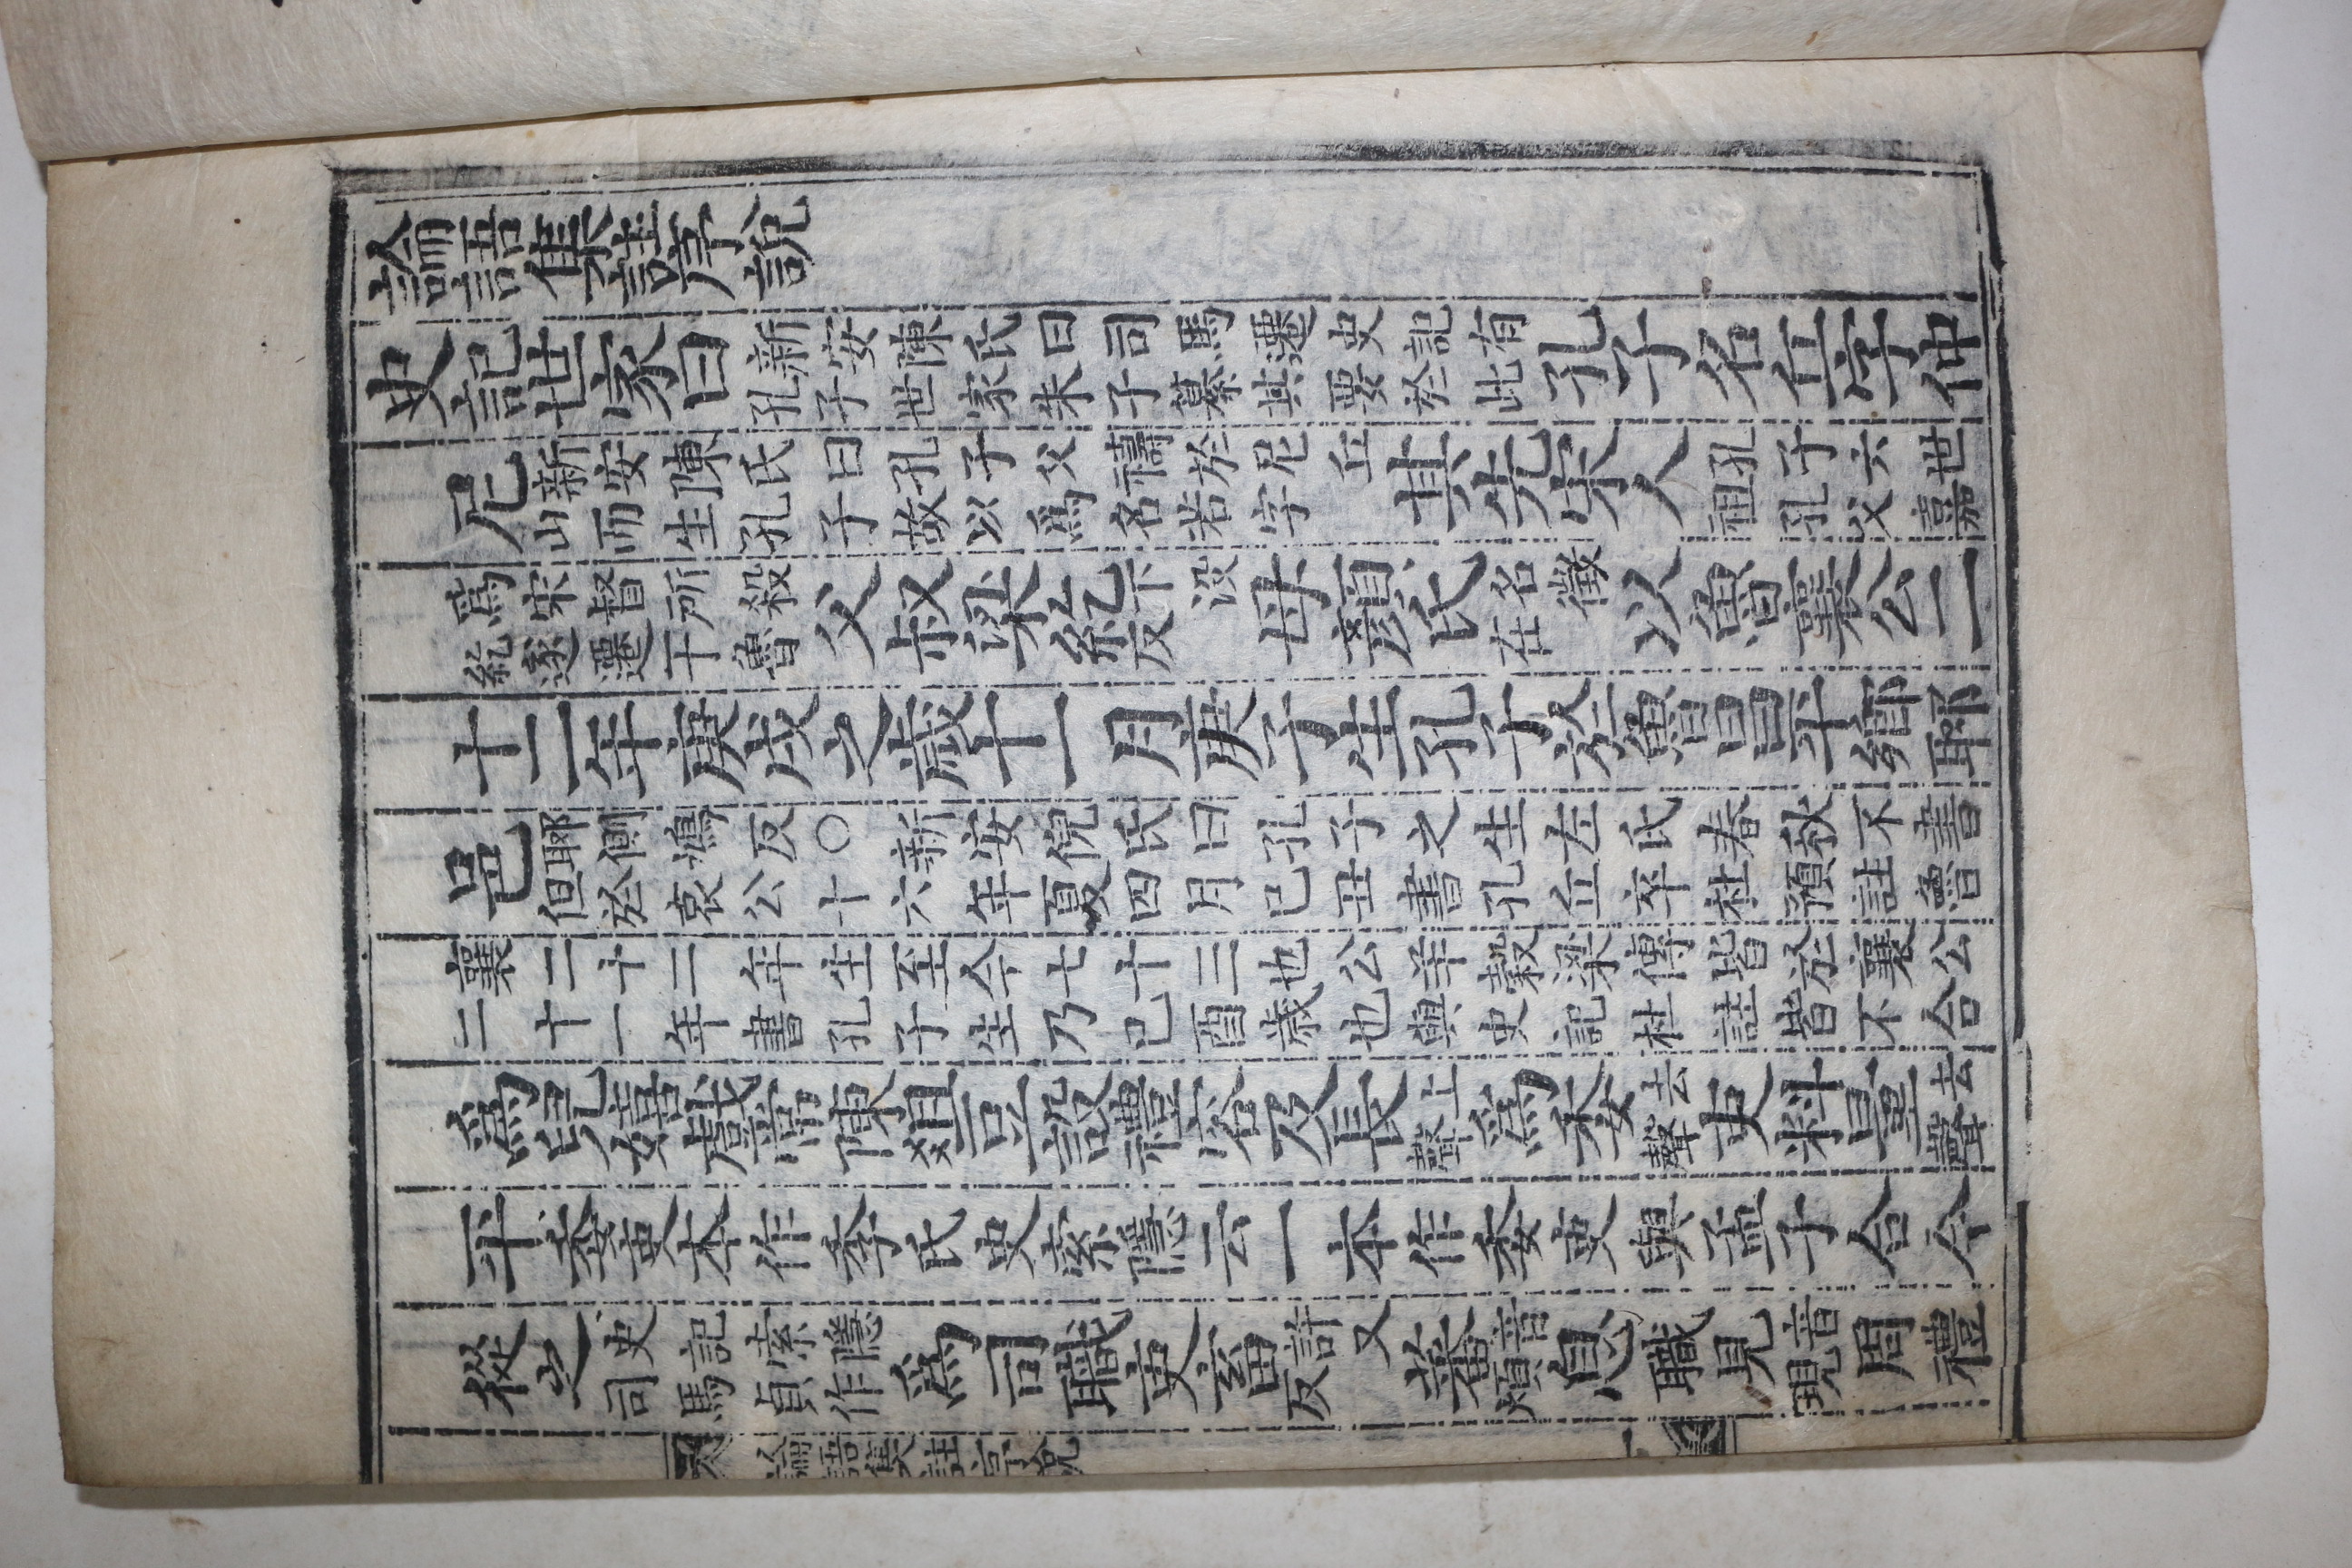 論語集註序說
史記世家曰新安陳氏曰司馬遷史記有孔子世家朱子纂其要於此孔子名丘字仲
尼新安陳氏曰孔子父禱於尼丘山而生孔子故以爲名若字其先宋人孔子六世祖孔父嘉
爲宋督所殺紇遂遷于魯父叔梁紇下没反母顏氏名徵在以魯襄公二
十二年庚戌之歲十一月庚子生孔子於魯昌平鄉耶
邑耶側鳩反○新安倪氏曰孔子之生左氏春秋不書但於哀公十六年夏四月己丑書孔丘卒杜預註魯
襄二十二年生至今七十三也公羊穀梁傳皆於襄公二十一年書孔子生乃己酉歲也與史記杜註皆不合
爲兒嬉戲常陳俎豆設禮容及長上聲爲委去聲吏料量去聲
平委吏本作季氏史索隱云一本作委吏與孟子合今
從之史記索隱司馬貞作爲司職吏畜許又反蕃音煩息職見音現周禮
論語集註序說
一